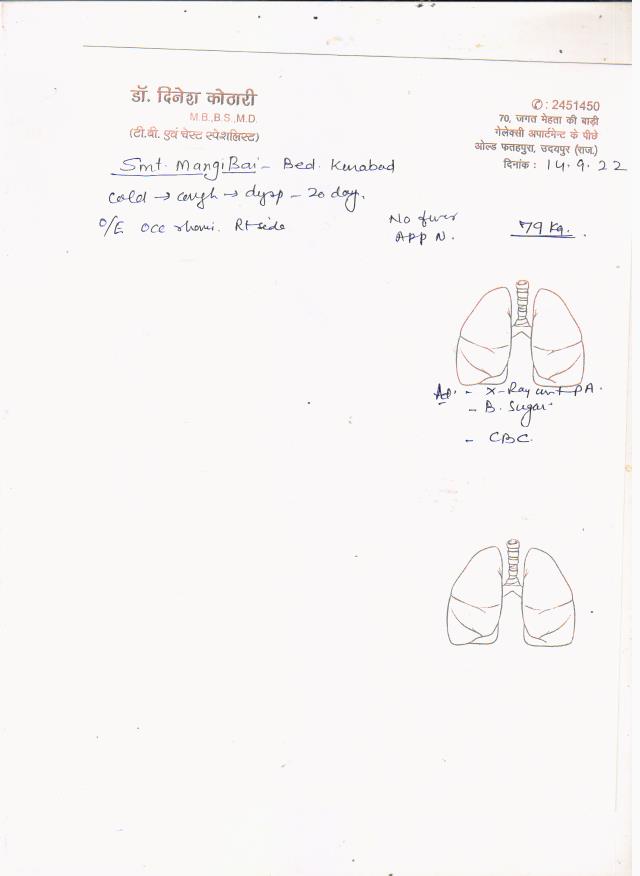 डॉ. दिनेश कोठारी
M.B.,B.S.,M.D.
(टी.बी. एवं चेस्ट स्पेशलिस्ट)
✆ : 2451450
70, जगत मेहता की बाड़ी
गेलेक्सी अपार्टमेन्ट के पीछे
ओल्ड फतहपुरा, उदयपुर (राज.)
दिनांक : 14.9.22
Smt. Mangi Bai - Bed. Kurabad
Cold → cough → dysp - 20 day.
O/E Occ rhoni. Rt side
No fever
APP N.
79 Kg.
Ad. - X-Ray PA.
- B. Sugar
- CBC.